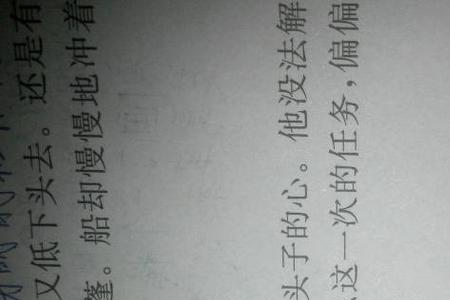 又低下头去。还是有
篷。船却慢慢地冲着
头子的心。他没法解
这一次的任务，偏偏